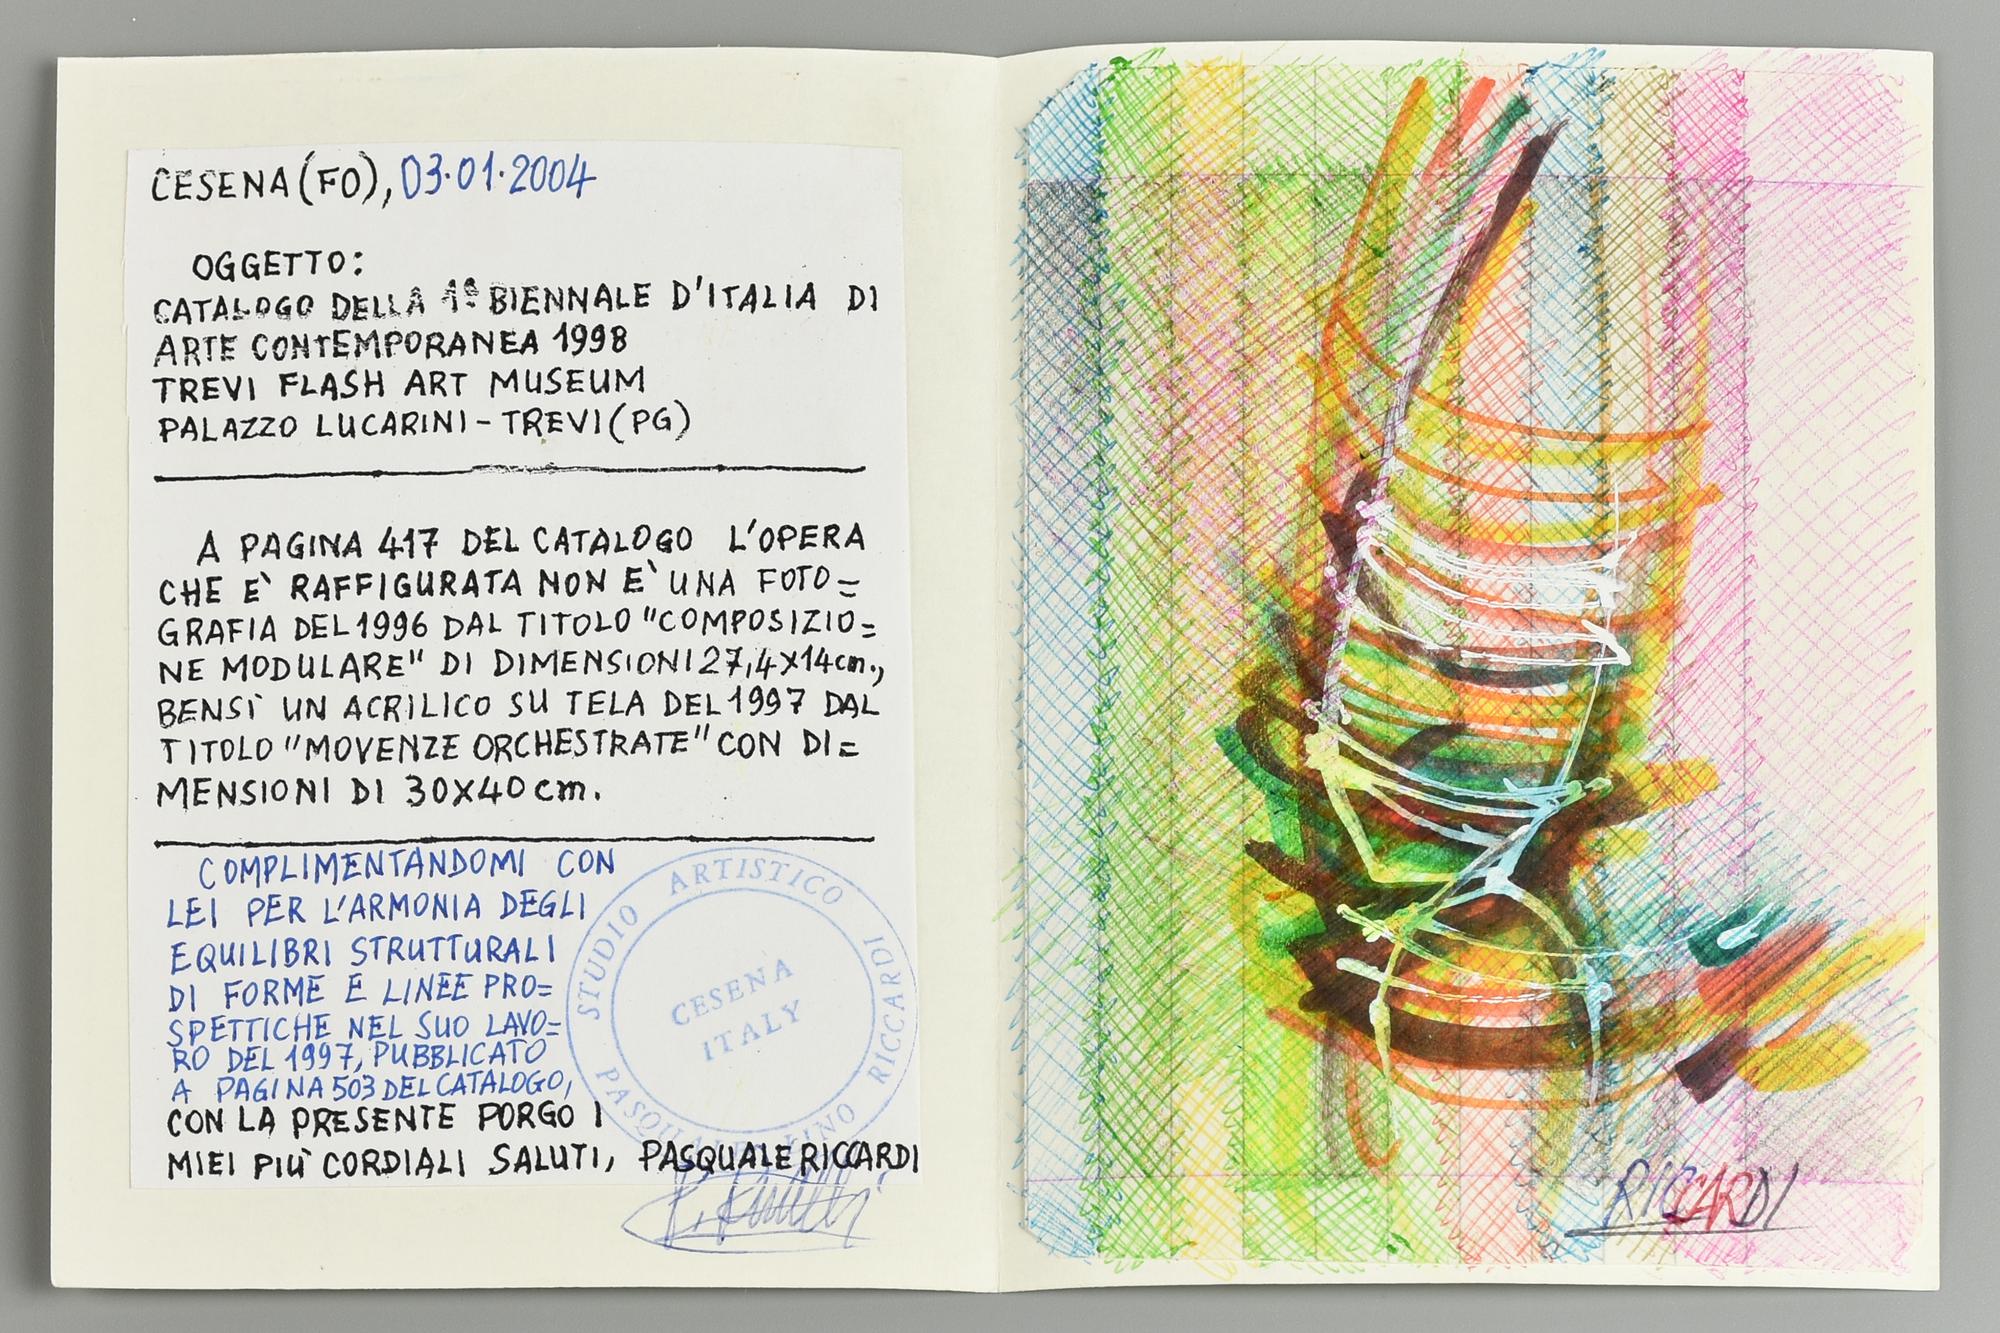 CESENA (FO), 03.01.2004
OGGETTO:
CATALOGO DELLA 1ª BIENNALE D'ITALIA DI
ARTE CONTEMPORANEA 1998
TREVI FLASH ART MUSEUM
PALAZZO LUCARINI - TREVI (PG)
A PAGINA 417 DEL CATALOGO L'OPERA
CHE E` RAFFIGURATA NON E` UNA FOTO=
GRAFIA DEL 1996 DAL TITOLO "COMPOSIZIO=
NE MODULARE" DI DIMENSIONI 27,4x14cm.,
BENSÌ UN ACRILICO SU TELA DEL 1997 DAL
TITOLO "MOVENZE ORCHESTRATE" CON DI=
MENSIONI DI 30x40 cm.
COMPLIMENTANDOMI CON
LEI PER L'ARMONIA DEGLI
EQUILIBRI STRUTTURALI
DI FORME E LINEE PRO=
SPETTICHE NEL SUO LAVO=
RO DEL 1997, PUBBLICATO
A PAGINA 503 DEL CATALOGO,
CON LA PRESENTE PORGO I
MIEI PIÙ CORDIALI SALUTI, PASQUALE RICCARDI
STUDIO ARTISTICO RICCARDI
CESENA
ITALY
RICCARDI